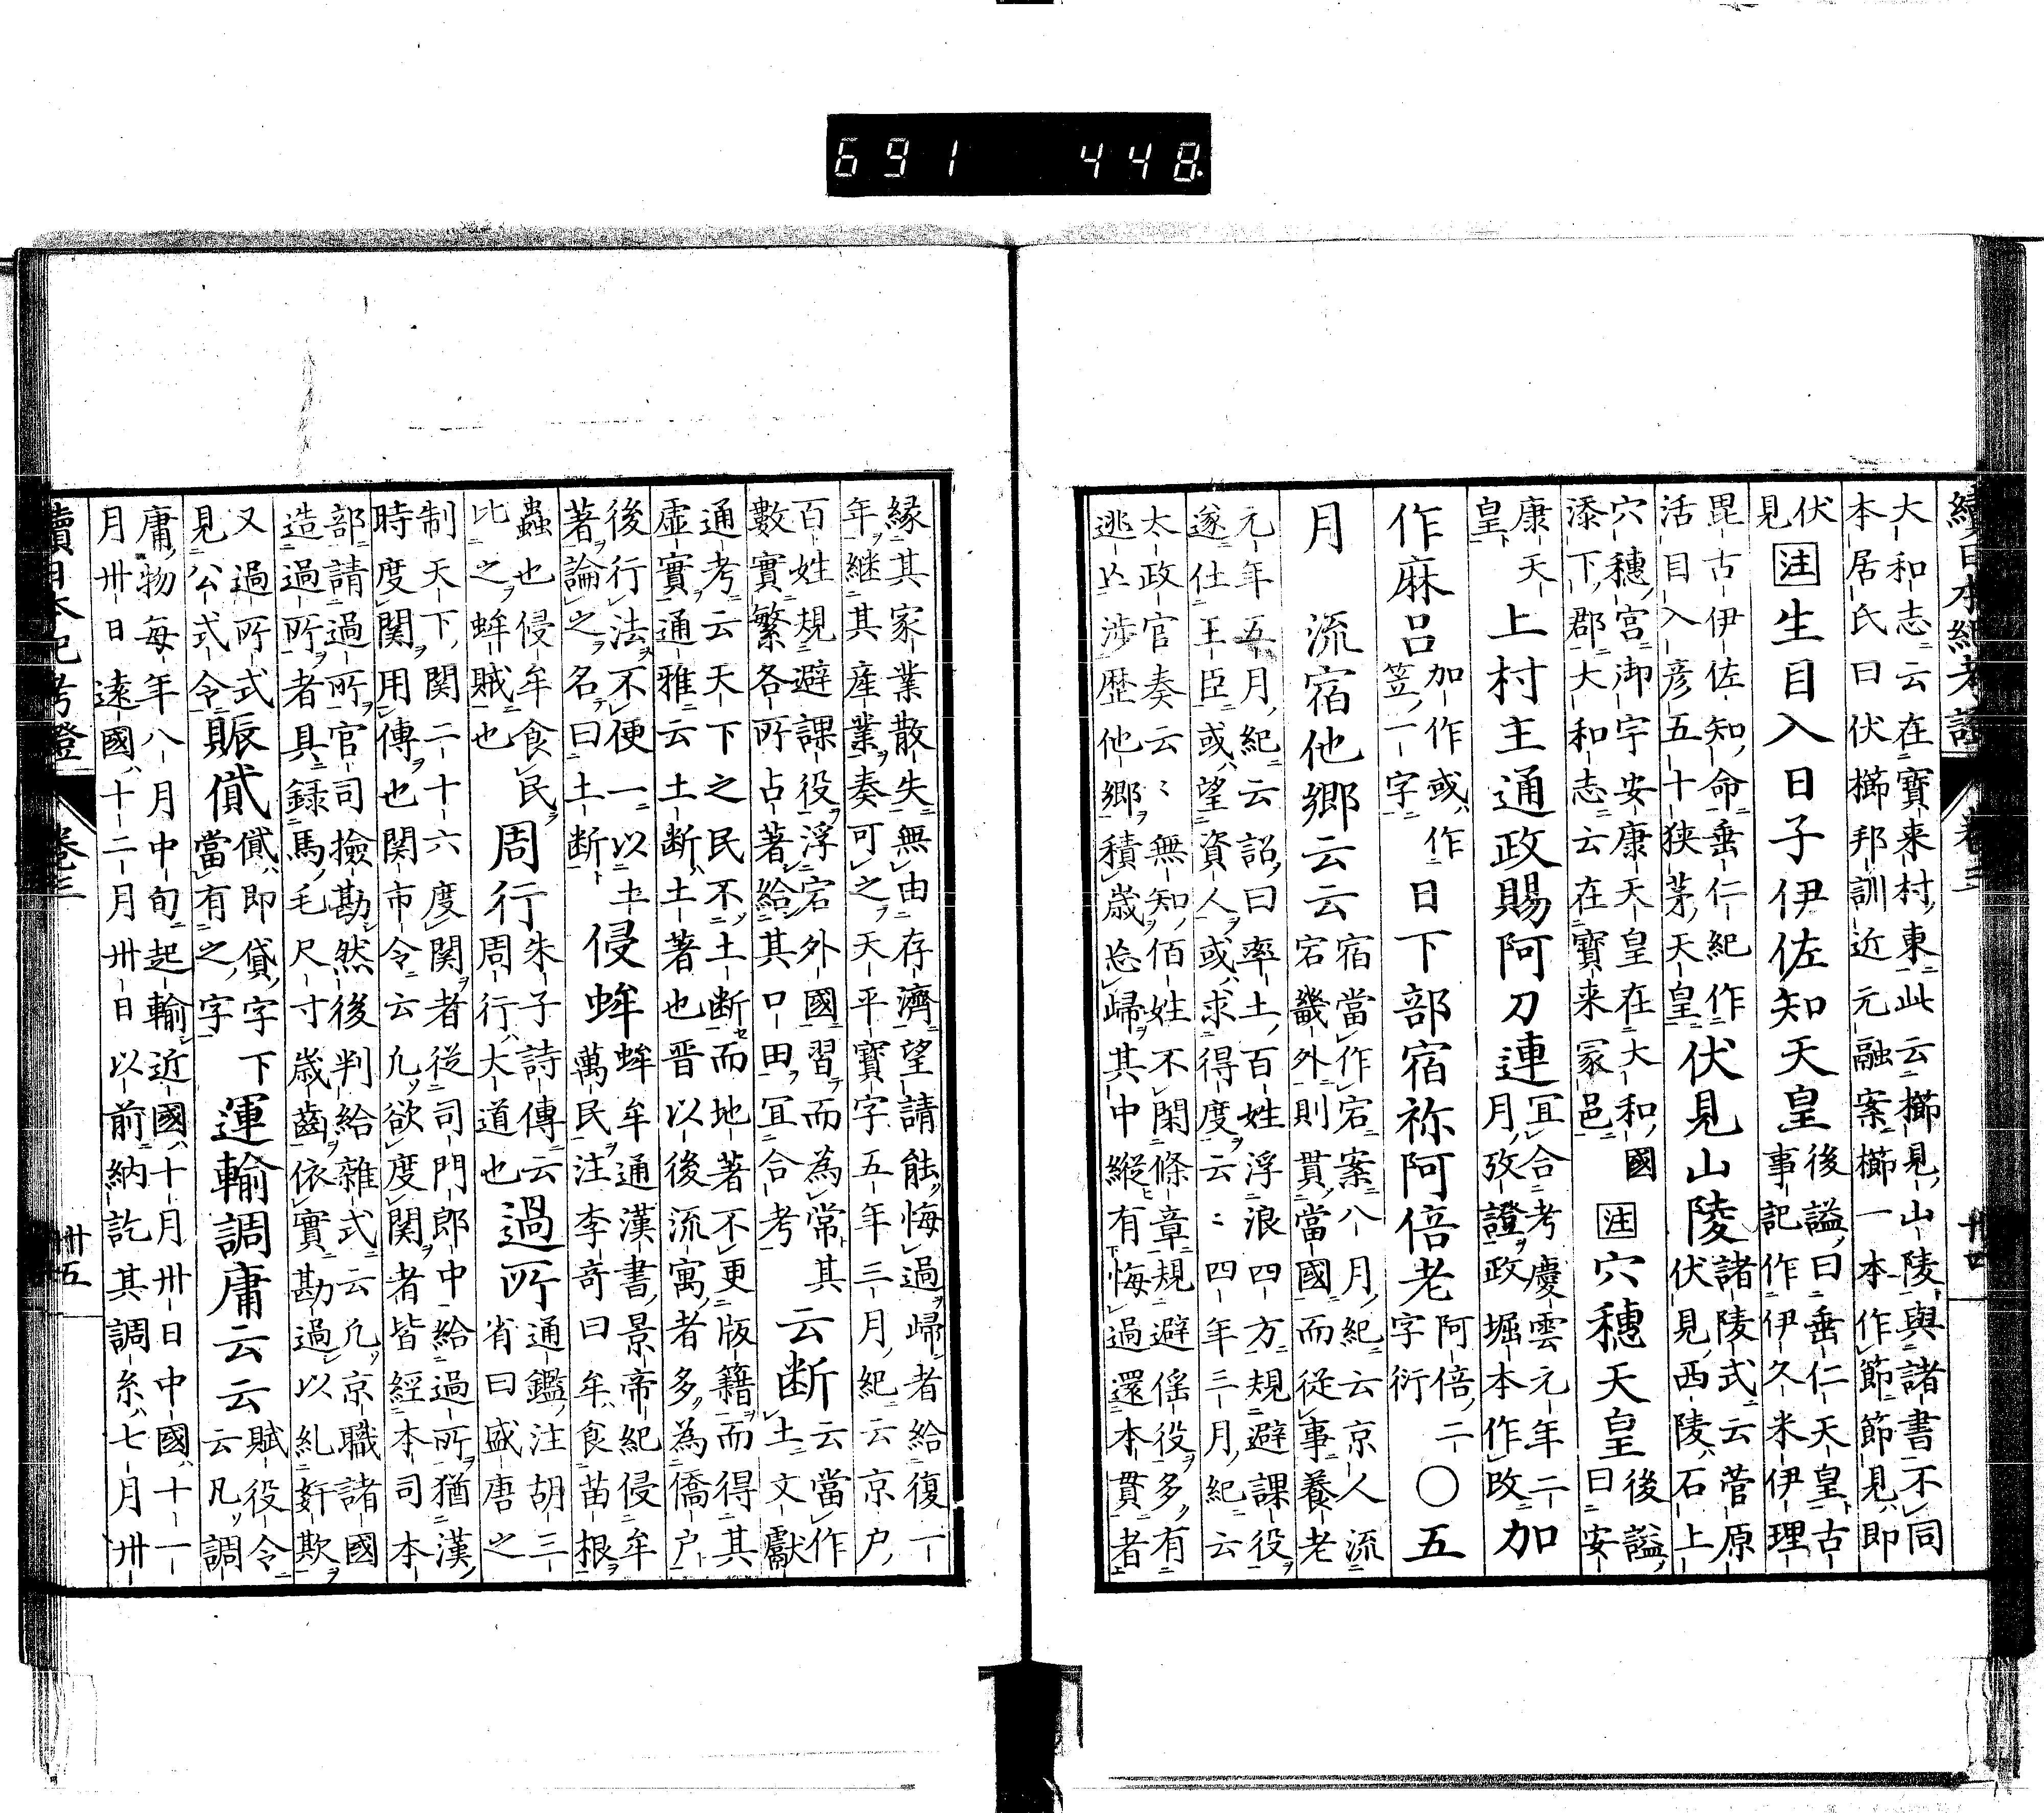 691 448
續日本紀考證 卷三 卅四
大和志云在寶来村東此云櫛見山陵與諸書不同
本居氏曰伏櫛邦訓近元融案櫛一本作節節見即
伏見 注 生目入日子伊佐知天皇 後謚曰垂仁天皇古事記作伊久米伊理
毘古伊佐知命垂仁紀作活目入彦五十狭茅天皇 伏見山陵 諸陵式云菅原伏見西陵石上
穴穗宮御宇安康天皇在大和國添下郡大和志云在寶来冢邑 注 穴穗天皇 後謚曰安
康天皇 上村主通政賜阿刀連 冝合考慶雲元年二月攷證政堀本作改 加
作麻呂 加作或作笠一字 日下部宿祢阿倍老 阿倍二字衍 〇五
月 流宿他鄉云云 宿當作宕案八月紀云京人流宕畿外則貫當國而從事養老
元年五月紀云詔曰率土百姓浮浪四方規避課役
遂仕王臣或望資人或求得度云〻四年三月紀云
太政官奏云〻無知佰姓不閑條章規避徭役多有
逃亾涉歴他鄉積歲忘歸其中縱有悔過還本貫者
緣其家業散失無由存濟望請能悔過歸者給復一
年継其産業奏可之天平寶字五年三月紀云京户
百姓規避課役浮宕外國習而為常其
數實繁各所占著給其口田冝合考 云断 云當作土文獻
通考云天下之民不土断而地著不更版籍而得其
虛實通雅云土断土著也晋以後流寓者多為僑户
後行法不便一以土
著論之名曰土断 侵蛑 蛑牟通漢書景帝紀侵牟萬民注李奇曰牟食苗根
蟲也侵牟食民
比之蛑賊也 周行 朱子詩傳云周行大道也 過所 通鑑注胡三省曰盛唐之
制天下関二十六度関者從司門郎中給過所猶漢
時度関用傳也関市令云凡欲度関者皆經本司本
部請過所官司撿勘然後判給雜式云凡京職諸國
造過所者具録馬毛尺寸歲齒依實勘過以糺奸欺
又過所式見公式令 賑貣 貣即貸字當有之字下 運輸調庸云云 賦役令云凡調
庸物每年八月中旬起輸近國十月卅日中國十一
月卅日遠國十二月卅日以前納訖其調糸七月卅
續日本紀考證 卷三 卅五